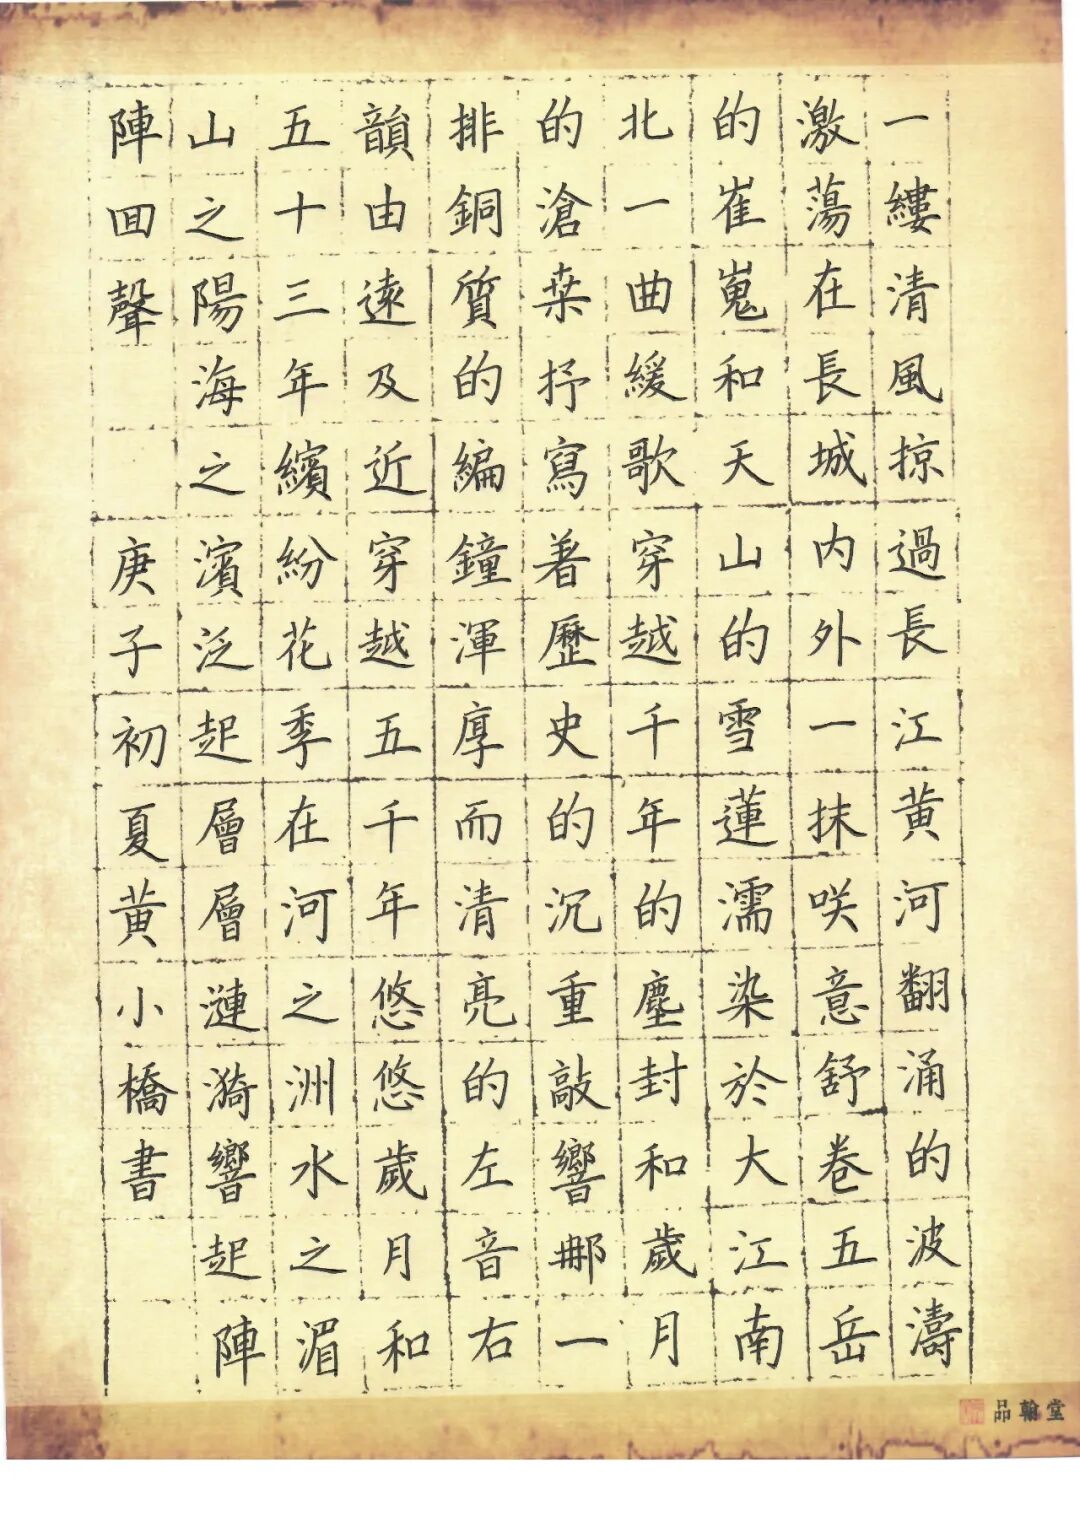 一縷清風掠過長江黄河翻涌的波濤
激蕩在長城内外一抹咲意舒卷五岳
的崔嵬和天山的雪蓮濡染於大江南
北一曲緩歌穿越千年的塵封和歲月
的滄桒抒寫着歷史的沉重敲響那一
排銅質的編鐘渾厚而清亮的左音右
韻由遠及近穿越五千年悠悠歲月和
五十三年繽紛花季在河之洲水之湄
山之陽海之濱泛起層層漣漪響起陣
陣回聲
庚子初夏黄小橋書
品翰堂